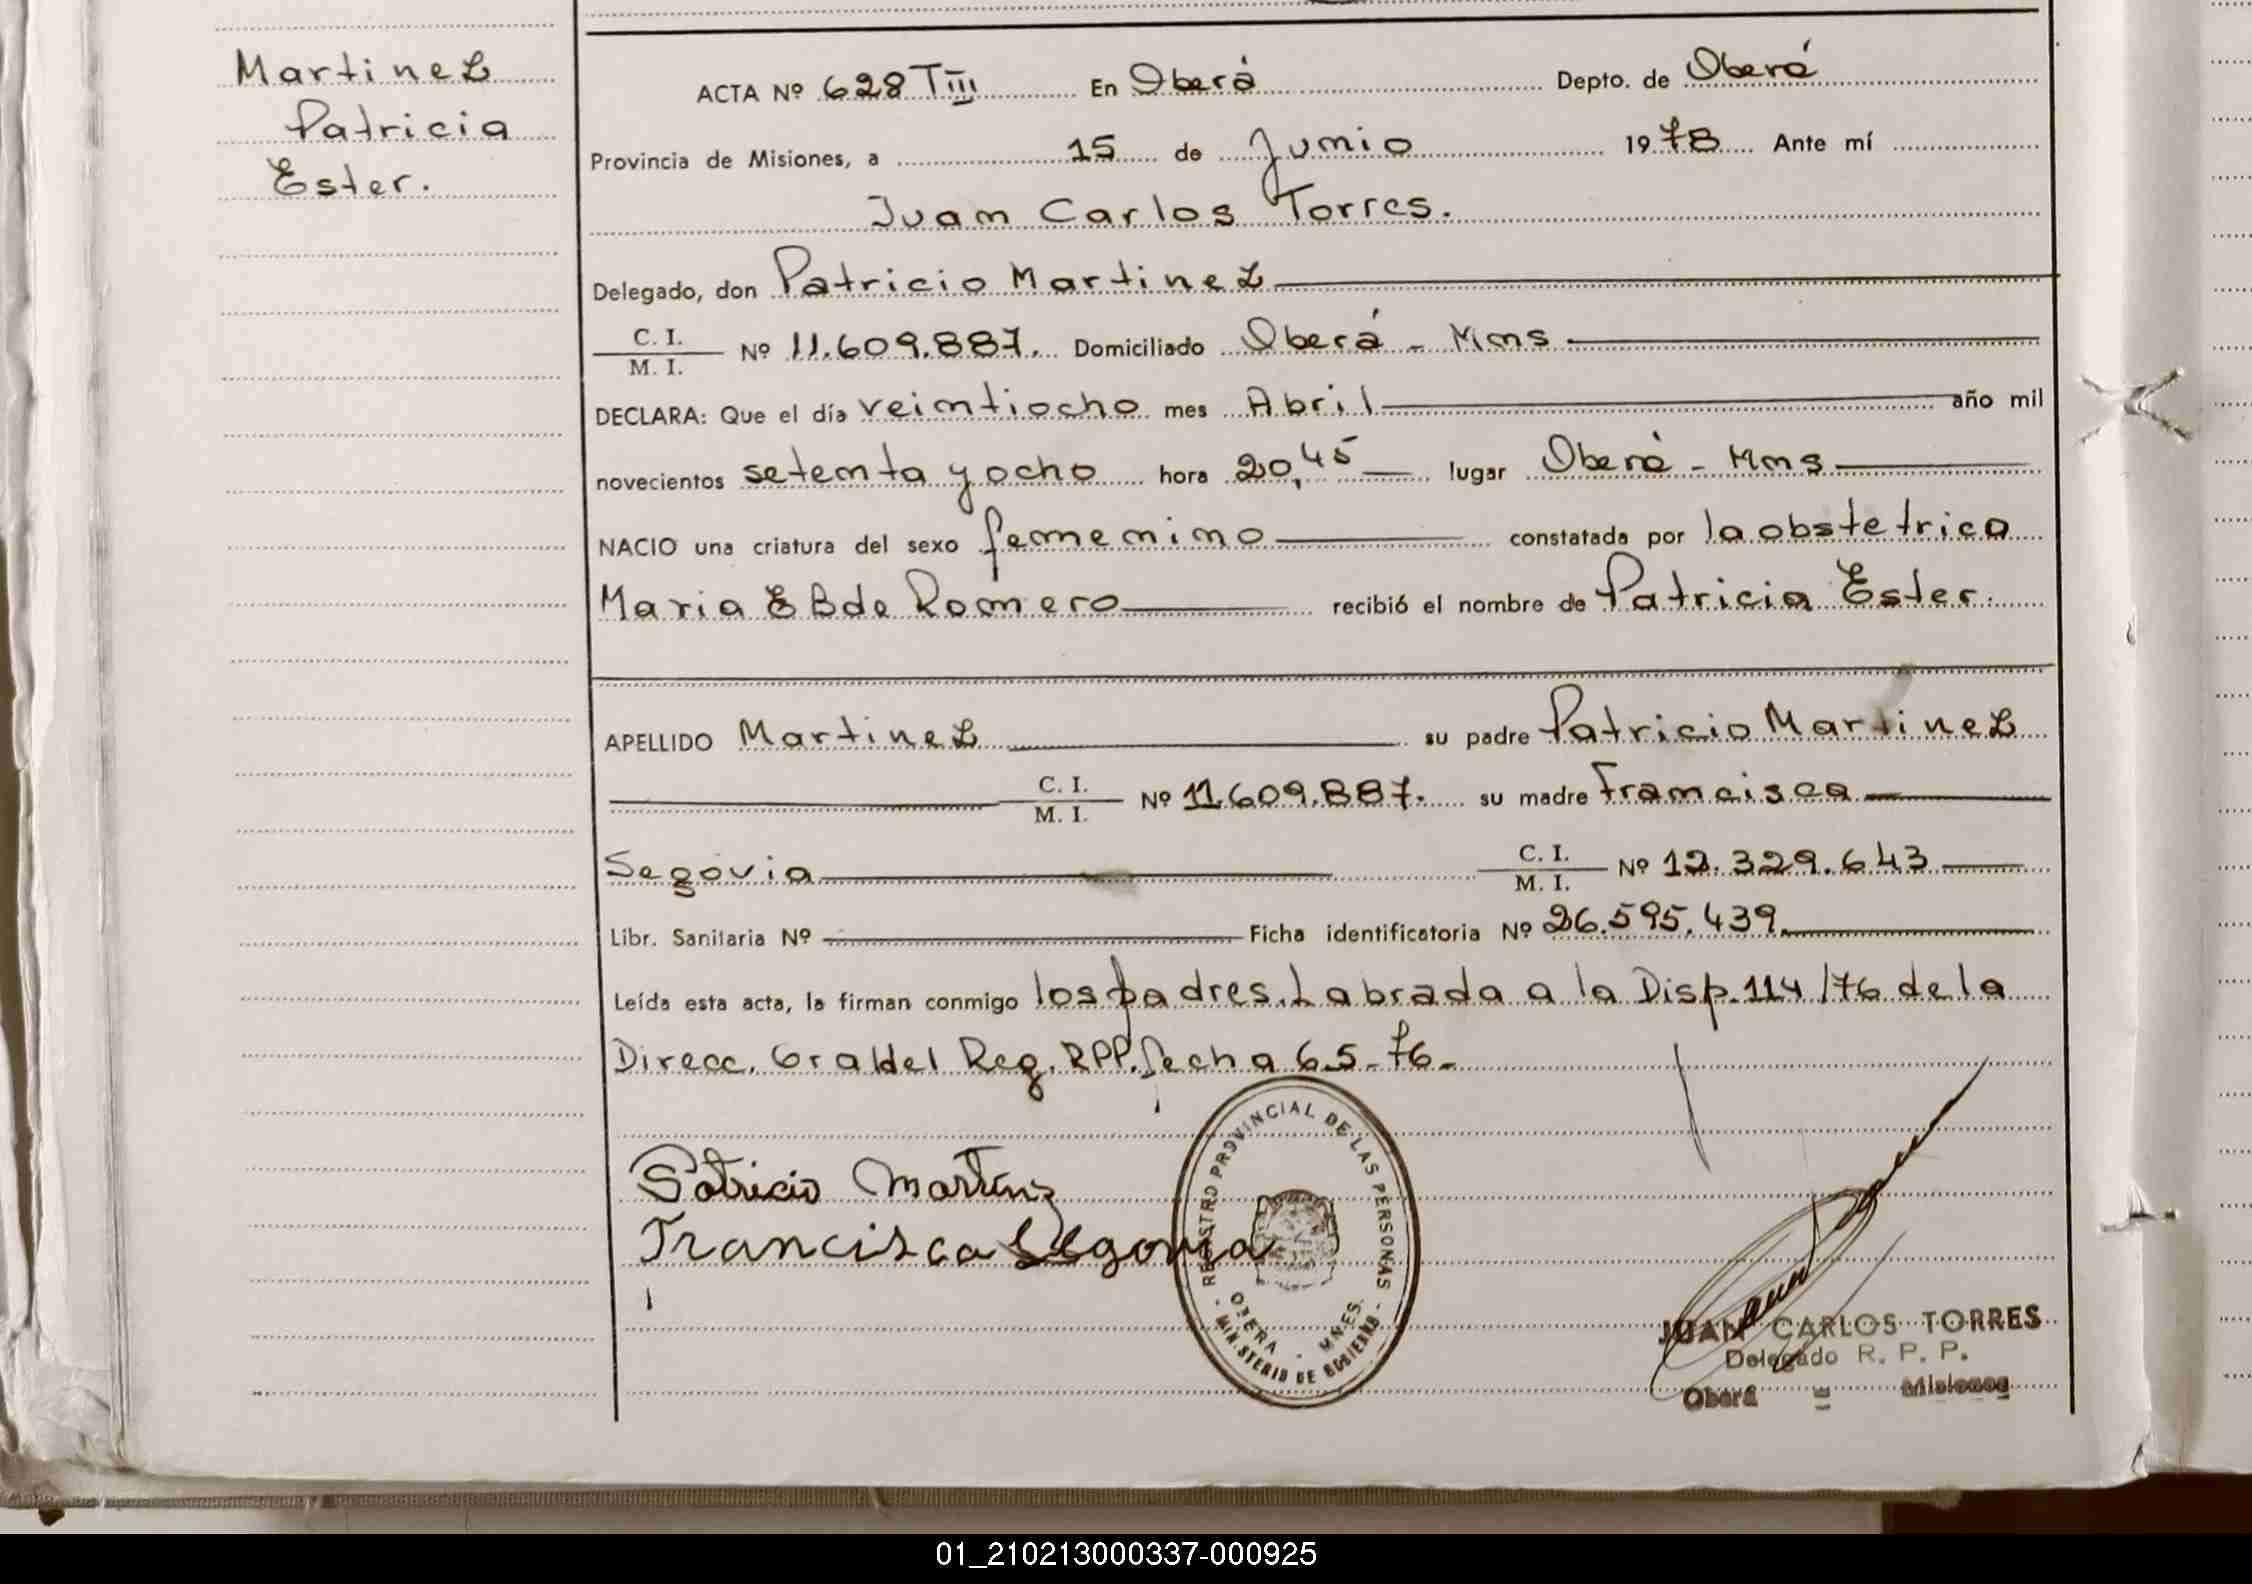 Martinez
Patricia
Ester.
ACTA Nº 628 TIII En Oberá Depto. de Oberá
Provincia de Misiones, a 15 de Junio 1978 Ante mí
Juan Carlos Torres.
Delegado, don Patricio Martinez
C. I.
M. I.
Nº 11.609.887. Domiciliado Oberá - Mnes
DECLARA: Que el día veintiocho mes Abril año mil
novecientos setenta y ocho hora 20,45 lugar Oberá - Mnes
NACIO una criatura del sexo femenino constatada por la obstetrica
Maria E B de Romero recibió el nombre de Patricia Ester.
APELLIDO Martinez su padre Patricio Martinez
C. I.
M. I.
Nº 11.609.887. su madre Francisca
Segovia
C. I.
M. I.
Nº 12.329.643
Libr. Sanitaria Nº Ficha identificatoria Nº 26.595.439.
Leída esta acta, la firman conmigo los padres. Labrada a la Disp. 114/76 de la
Direcc. Gral del Reg. RPP. fecha 6-5-76-
Patricio Martinez
Francisca Segovia
REGISTRO PROVINCIAL DE LAS PERSONAS
OBERA - MNES.
- MINISTERIO DE GOBIERNO -
JUAN CARLOS TORRES
Delegado R. P. P.
Oberá - Misiones
01_210213000337-000925